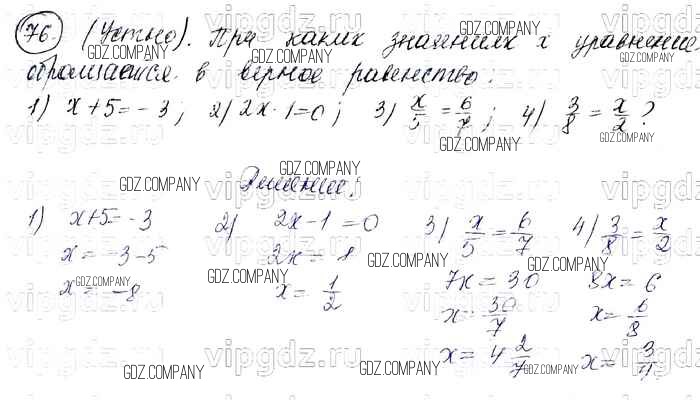 76. (Устно). При каких значениях x уравнение
обращается в верное равенство:
1) x+5=-3; 2) 2x-1=0; 3) x/5 = 6/7; 4) 3/8 = x/2?
Решение:
1) x+5=-3 2) 2x-1=0 3) x/5 = 6/7 4) 3/8 = x/2
x=-3-5 2x=1 7x=30 8x=6
x=-8 x=1/2 x=30/7 x=6/8
x=4 2/7 x=3/4
GDZ.COMPANY
vipgdz.ru